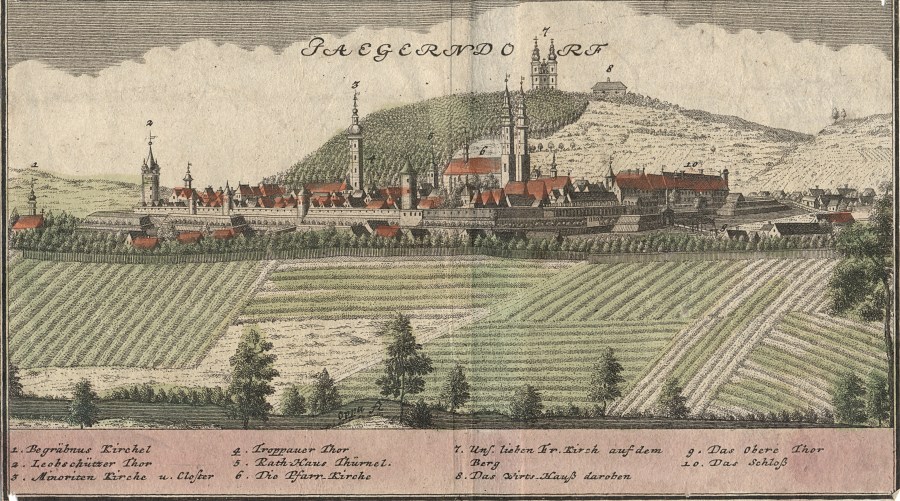 JAEGERNDORF
7
8
3
2
5
4
6
10
1
Oppa R
1. Begräbnus Kirchel
2. Leobschützer Thor
3. Minoriten Kirche u. Closter
4. Troppauer Thor
5. Rath-Haus Thürnel.
6. Die Pfarr-Kirche
7. Unſ. lieben Fr. Kirch auf dem
Berg
8. Das Wirts-Hauß daroben
9. Das Obere Thor
10. Das Schloß